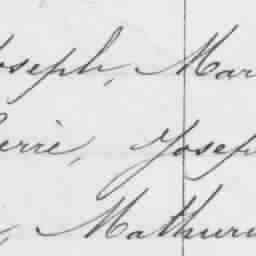 Joseph, Mar
ierre, Josep
, Mathuri